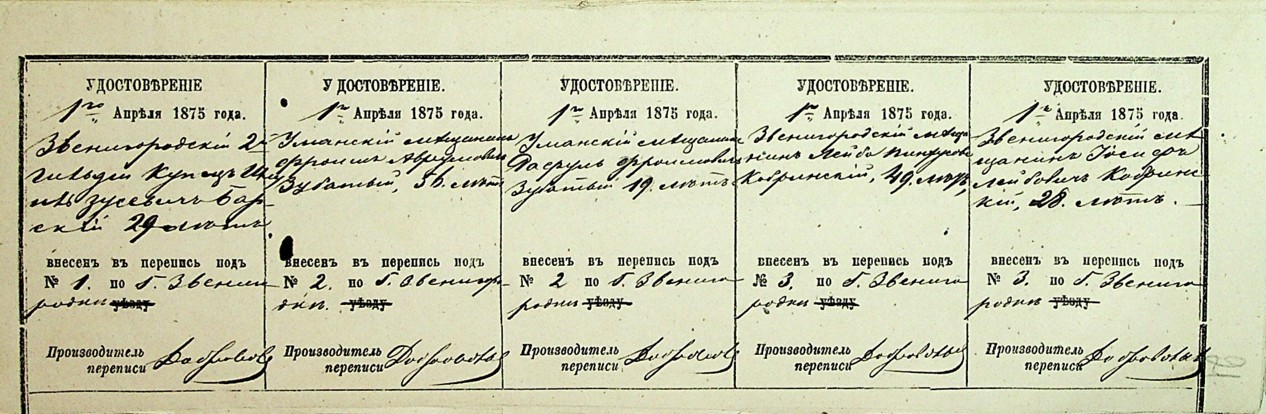 УДОСТОВѢРЕНІЕ
1го Апрѣля 1875 года.
Звенигородскій 2й
гильдіи Купецъ
Зусевичъ Бар-
скій 29 лѣтъ
внесенъ въ перепись подъ
№ 1. по г. Звениго
родки уѣзду
Производитель
переписи
УДОСТОВѢРЕНІЕ.
1го Апрѣля 1875 года.
Уманскій мѣщанинъ
Фроимъ Аврумовичъ
Зубатый, 56. лѣтъ
внесенъ въ перепись подъ
№ 2. по г. Звениго
родки. уѣзду
Производитель
переписи
УДОСТОВѢРЕНІЕ.
1го Апрѣля 1875 года.
Уманскій мѣщанинъ
Фроимовичъ
Зубатый 19. лѣтъ
внесенъ въ перепись подъ
№ 2 по г. Звениго
родки уѣзду
Производитель
переписи
УДОСТОВѢРЕНІЕ.
1го Апрѣля 1875 года.
Звенигородскій мѣща
нинъ Лейба
Кобринскій, 49. лѣтъ
внесенъ въ перепись подъ
№ 3. по г. Звениго
родки уѣзду
Производитель
переписи
УДОСТОВѢРЕНІЕ.
1го Апрѣля 1875 года.
Звенигородскій мѣ
щанинъ Іосифъ
Лейбовичъ Кобрин
скій, 28. лѣтъ.
внесенъ въ перепись подъ
№ 3. по г. Звениго
родки уѣзду
Производитель
переписи